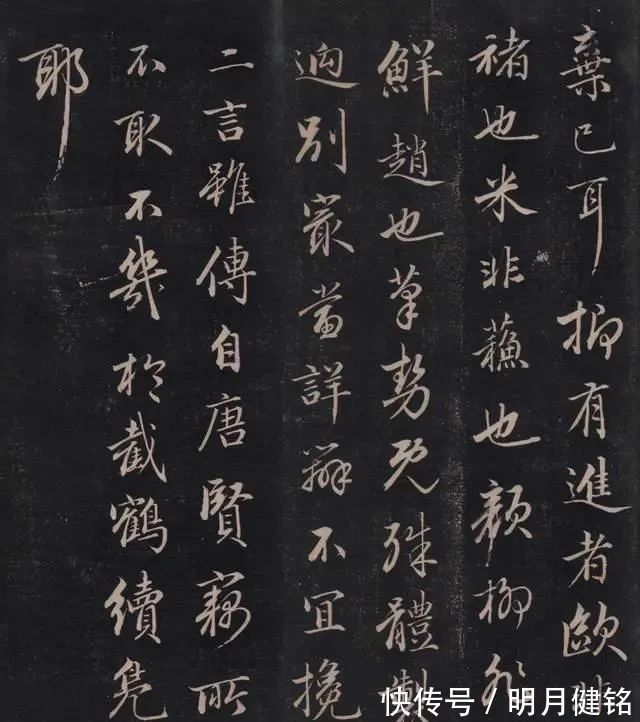 棄已耳抑有進者歐非
褚也米非蘓也顏柳非
鮮趙也筆勢既殊體製
逈別冣當詳辨不宜攙
二言雖傳自唐賢竊所
不取不幾於截鶴續鳧
耶
快传号/明月健铭